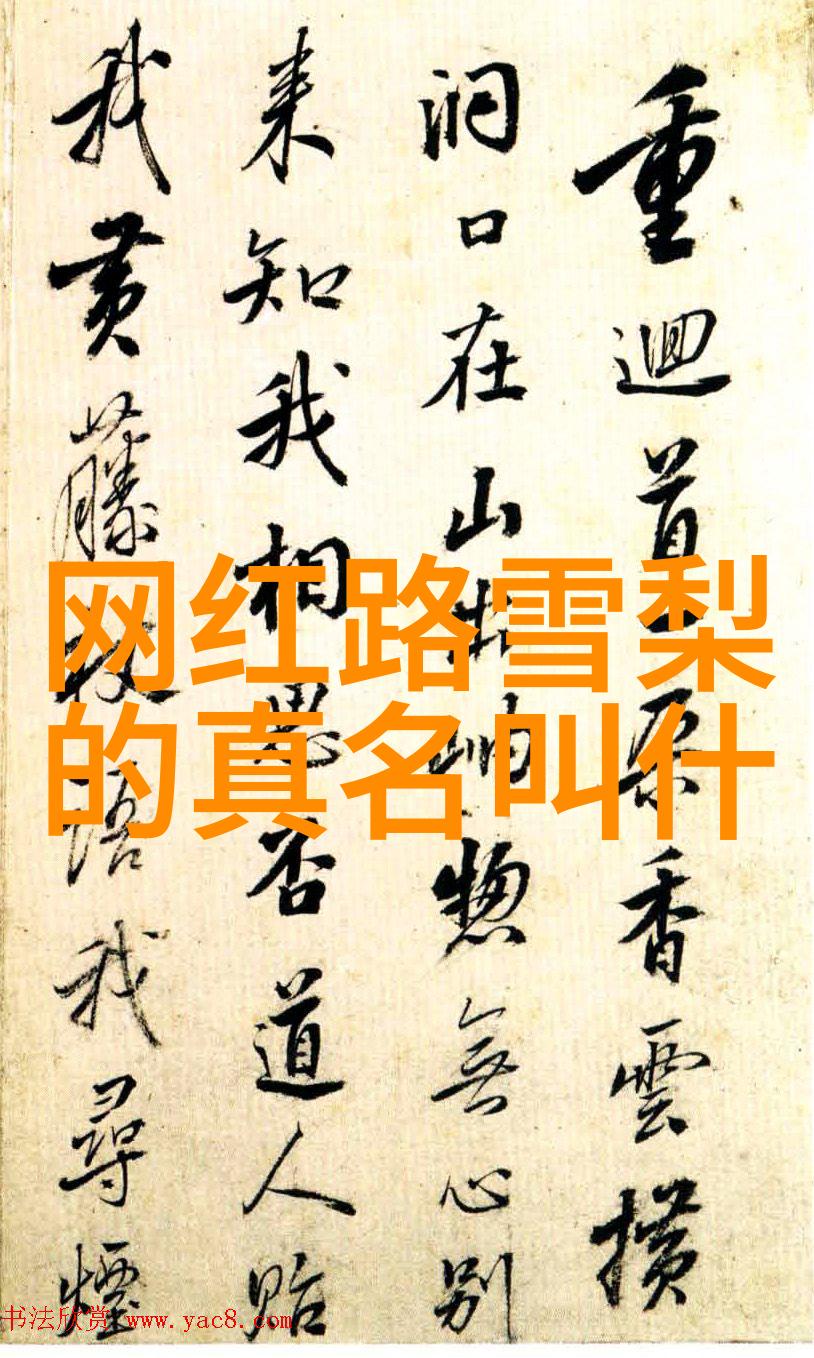 网红路雪梨
的真名叫什
重迴首香雲横
洞口在山出岫惣無心別
来知我相思否道人貽
我黄藤杖語我尋煙
书法欣赏 www.yac8.com